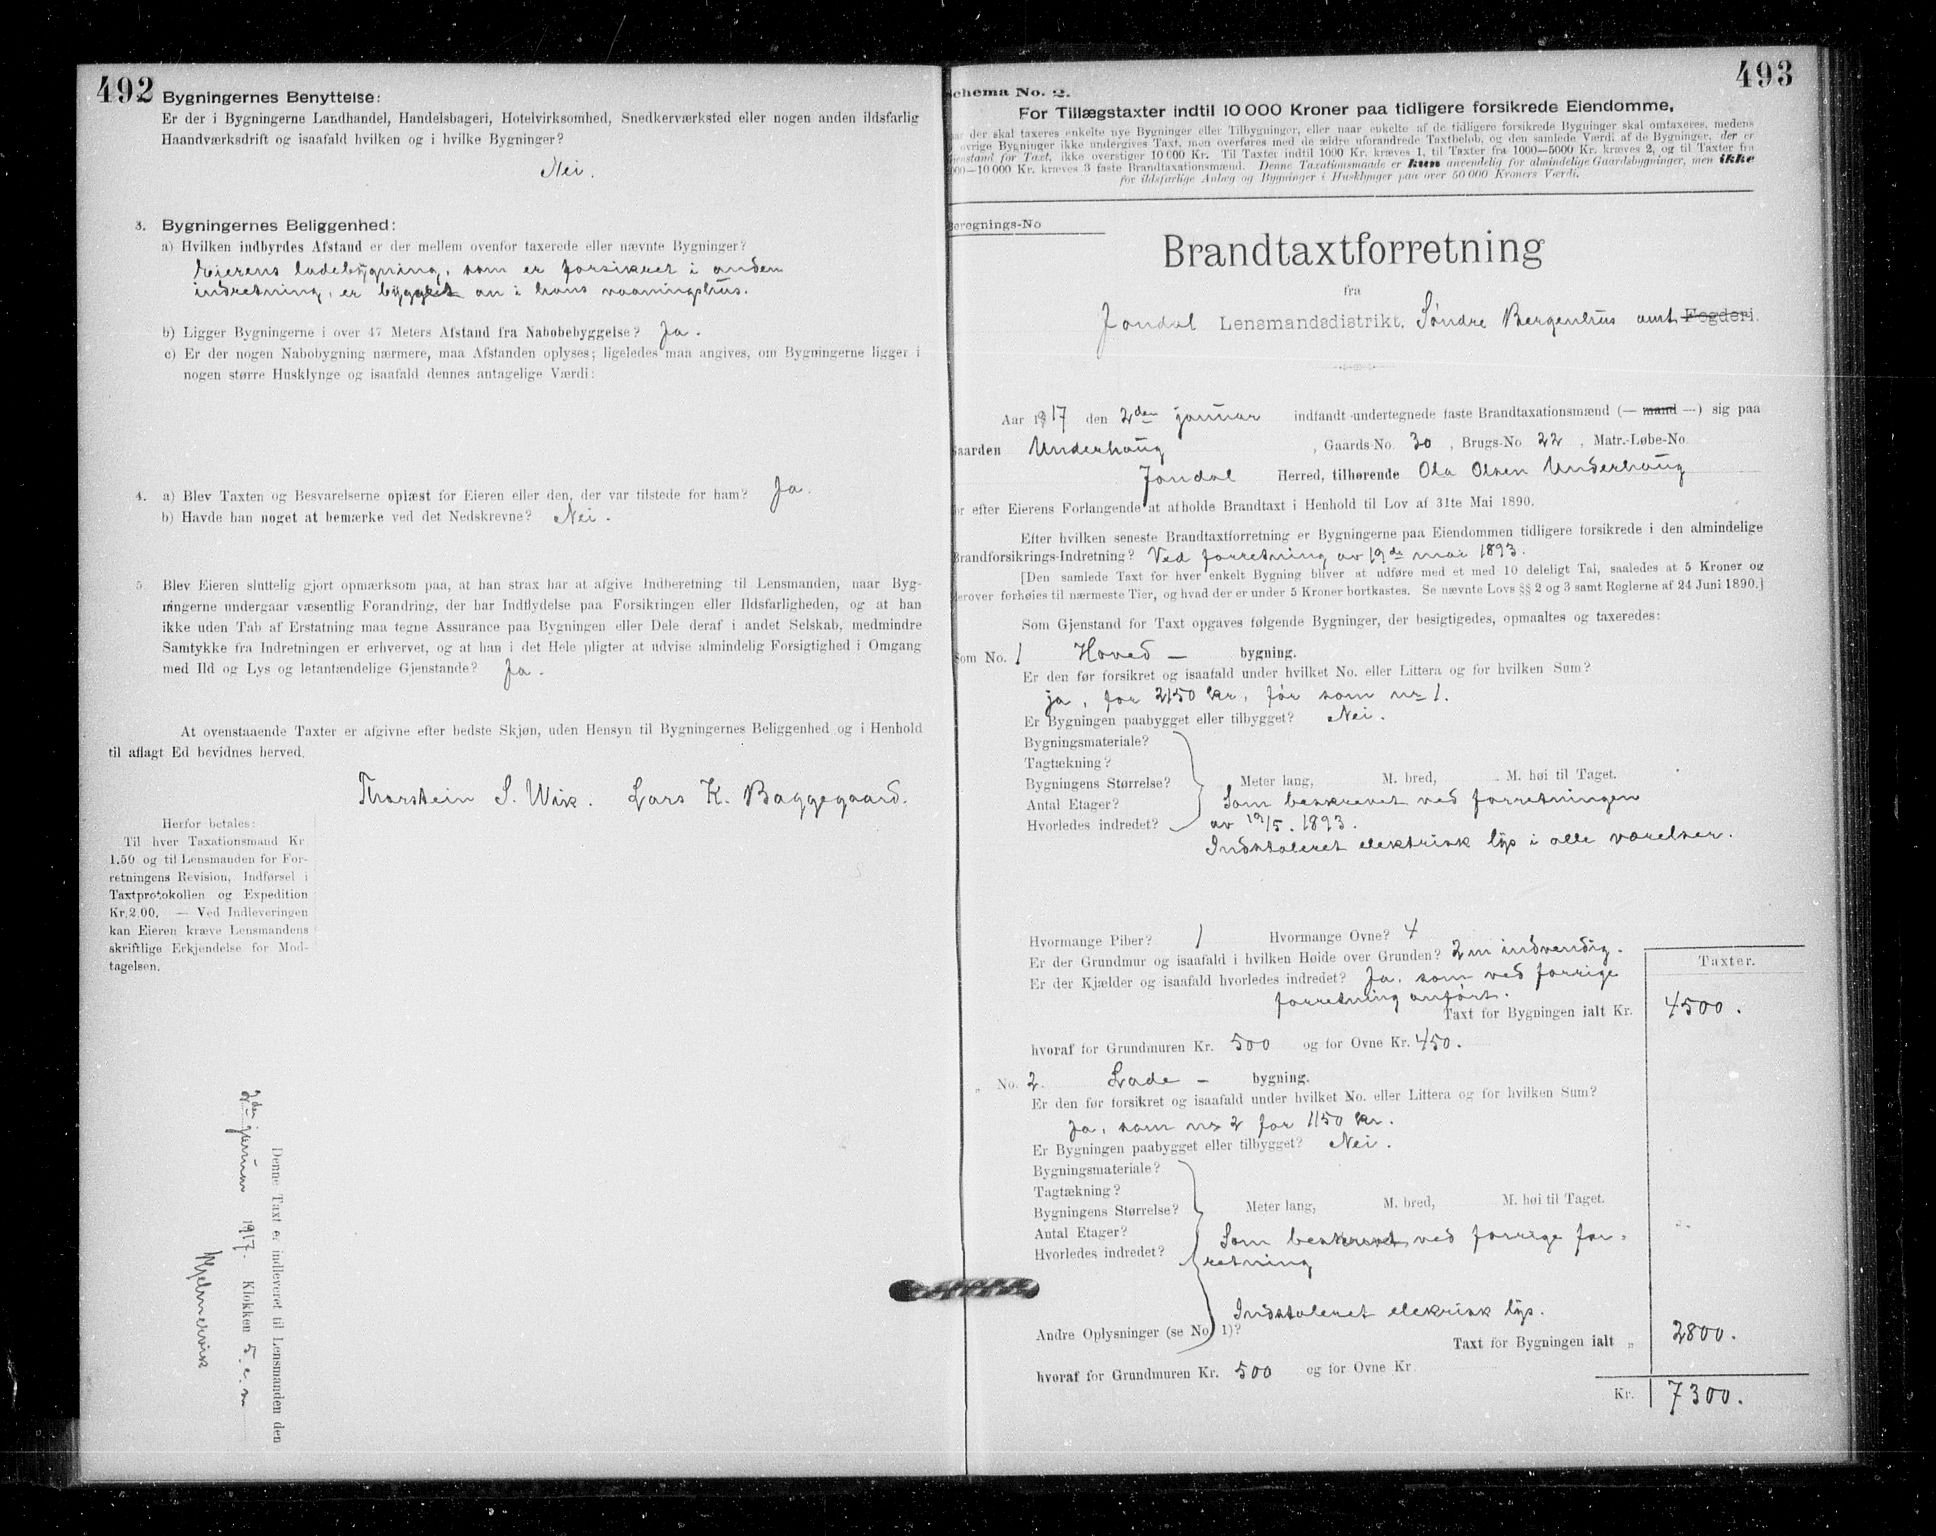 492
Bygningernes Benyttelse:
Er der i Bygningerne Landhandel, Handelsbageri, Hotelvirksomhed, Snedkerværksted eller nogen anden ildsfarlig
Haandværksdrift og isaafald hvilken og i hvilke Bygninger?
Nei.
3. Bygningernes Beliggenhed:
a) Hvilken indbyrdes Afstand er der mellem ovenfor taxerede eller nævnte Bygninger?
Eierens ladebygning, som er forsikret i anden
indretning, er bygget an i hans vaaningshus.
b) Ligger Bygningerne i over 47 Meters Afstand fra Nabobebyggelse? Ja.
c) Er der nogen Nabobygning nærmere, maa Afstanden oplyses; ligeledes maa angives, om Bygningerne ligger i
nogen større Husklynge og isaafald dennes antagelige Værdi:
4. a) Blev Taxten og Besvarelserne oplæst for Eieren eller den, der var tilstede for ham? Ja.
b) Havde han noget at bemærke ved det Nedskrevne? Nei.
5. Blev Eieren sluttelig gjort opmærksom paa, at han strax har at afgive Indberetning til Lensmanden, naar Byg-
ningerne undergaar væsentlig Forandring, der har Indflydelse paa Forsikringen eller Ildsfarligheden, og at han
ikke uden Tab af Erstatning maa tegne Assurance paa Bygningen eller Dele deraf i andet Selskab, medmindre
Samtykke fra Indretningen er erhvervet, og at han i det Hele pligter at udvise almindelig Forsigtighed i Omgang
med Ild og Lys og letantændelige Gjenstande? Ja.
At ovenstaaende Taxter er afgivne efter bedste Skjøn, uden Hensyn til Bygningernes Beliggenhed og i Henhold
til aflagt Ed bevidnes herved.
Thorstein S. Wik. Lars K. Baggegaard.
Herfor betales:
Til hver Taxationsmand Kr.
1.50 og til Lensmanden for For-
retningens Revision, Indførsel i
Taxtprotokollen og Expedition
Kr. 2.00. — Ved Indleveringen
kan Eieren kræve Lensmandens
skriftlige Erkjendelse for Mod-
tagelsen.
Denne Taxt er indleveret til Lensmanden den
2den januar 1917. Klokken 5 e. m
Hjelmervik
493
Schema No. 2.
For Tillægstaxter indtil 10 000 Kroner paa tidligere forsikrede Eiendomme,
naar der skal taxeres enkelte nye Bygninger eller Tilbygninger, eller naar enkelte af de tidligere forsikrede Bygninger skal omtaxeres, medens
øvrige Bygninger ikke undergives Taxt, men overføres med de ældre uforandrede Taxtbeløb, og den samlede Værdi af de Bygninger, der er
Gjenstand for Taxt, ikke overstiger 10 000 Kr. Til Taxter indtil 1000 Kr. kræves 1, til Taxter fra 1000—5000 Kr. kræves 2, og til Taxter fra
5000—10 000 Kr. kræves 3 faste Brandtaxationsmænd. Denne Taxationsmaade er kun anvendelig for almindelige Gaardsbygninger, men ikke
for ildsfarlige Anlæg og Bygninger i Husklynger paa over 50 000 Kroners Værdi.
Beregnings-No
Brandtaxtforretning
fra
Jondal Lensmandsdistrikt, Søndre Bergenhus amt Fogderi.
Aar 1917 den 2den januar indfandt undertegnede faste Brandtaxationsmænd (— mand —) sig paa
Gaarden Underhaug, Gaards-No. 30, Brugs-No. 22, Matr.-Løbe-No.
Jondal Herred, tilhørende Ola Olsen Underhaug
for efter Eierens Forlangende at afholde Brandtaxt i Henhold til Lov af 31te Mai 1890.
Efter hvilken seneste Brandtaxtforretning er Bygningerne paa Eiendommen tidligere forsikrede i den almindelige
Brandforsikrings-Indretning? Ved forretning av 19de mai 1893.
[Den samlede Taxt for hver enkelt Bygning bliver at udføre med et med 10 deleligt Tal, saaledes at 5 Kroner og
derover forhøies til nærmeste Tier, og hvad der er under 5 Kroner bortkastes. Se nævnte Lovs §§ 2 og 3 samt Reglerne af 24 Juni 1890.]
Som Gjenstand for Taxt opgaves følgende Bygninger, der besigtigedes, opmaaltes og taxeredes:
Som No. 1 Hoved — bygning.
Er den før forsikret og isaafald under hvilket No. eller Littera og for hvilken Sum?
ja, for 2150 kr, før som nr 1.
Er Bygningen paabygget eller tilbygget? Nei.
Bygningsmateriale?
Tagtækning?
Bygningens Størrelse? Meter lang, M. bred, M. høi til Taget.
Antal Etager? Som beskrevet ved forretningen
Hvorledes indredet? av 19/5. 1893.
Indstaleret elektrisk lys i alle værelser.
Hvormange Piber? 1 Hvormange Ovne? 4
Er der Grundmur og isaafald i hvilken Høide over Grunden? 2 m indvendig.
Er der Kjælder og isaafald hvorledes indredet? Ja, som ved forrige
forretning anført.
Taxter.
Taxt for Bygningen ialt Kr. 4500.
hvoraf for Grundmuren Kr. 500 og for Ovne Kr. 450.
„ No. 2. Lade — bygning.
Er den før forsikret og isaafald under hvilket No. eller Littera og for hvilken Sum?
Ja, som nr 2 for 1150 kr.
Er Bygningen paabygget eller tilbygget? Nei.
Bygningsmateriale?
Tagtækning?
Bygningens Størrelse? Meter lang, M. bred, M. høi til Taget.
Antal Etager? Som beskrevet ved forrige for-
Hvorledes indredet? retning
Indstaleret elekrisk lys.
Andre Oplysninger (se No. 1)?
Taxt for Bygningen ialt „ 2800.
hvoraf for Grundmuren Kr. 500 og for Ovne Kr.
Kr. 7300.